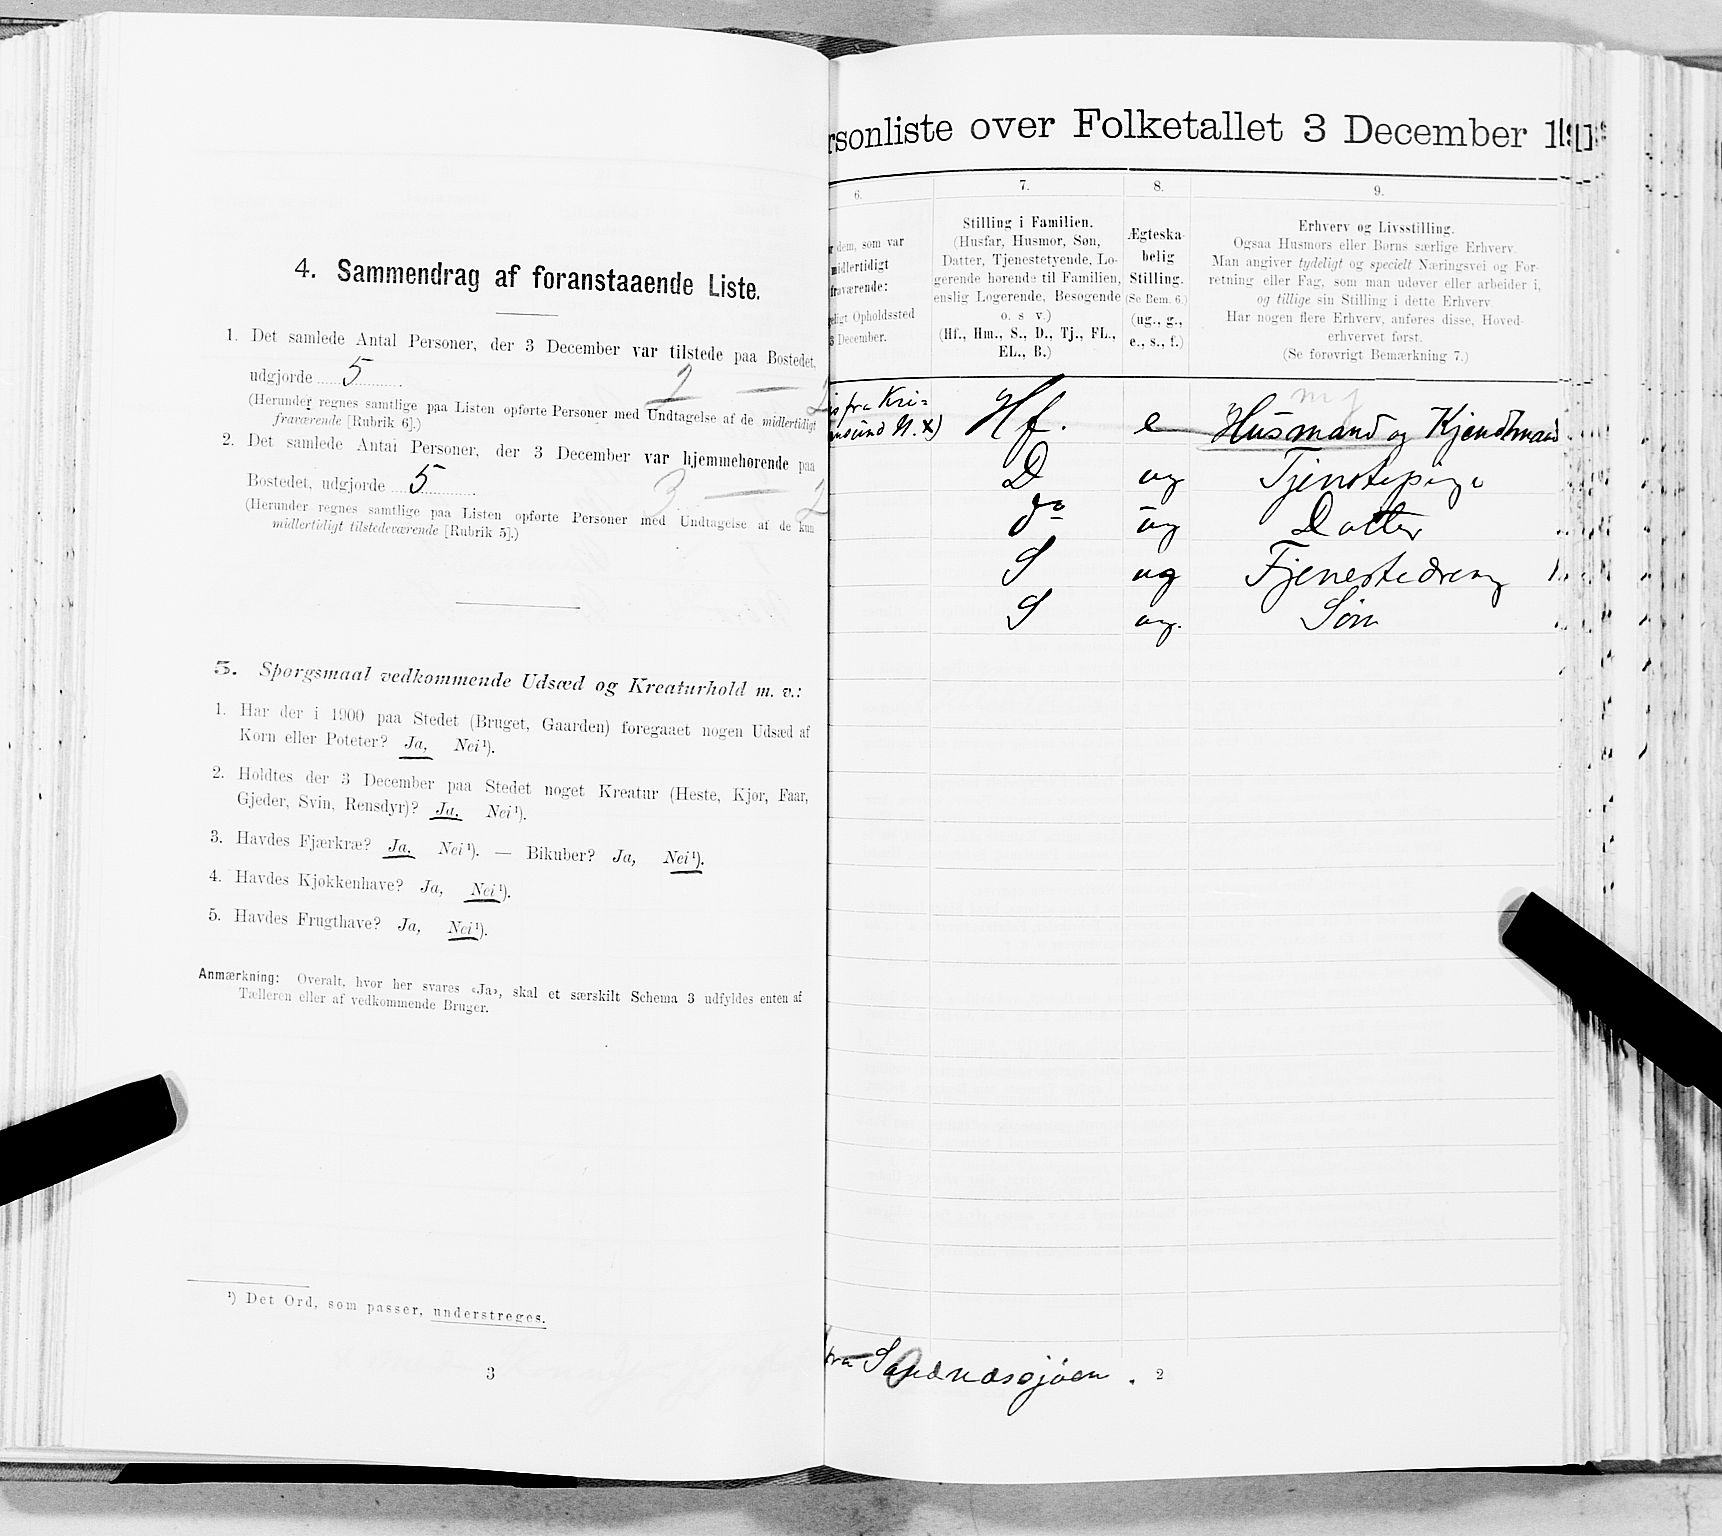 4. Sammendrag af foranstaaende Liste.
1. Det samlede Antal Personer, der 3 December var tilstede paa Bostedet,
udgjorde 5 2 — 2
(Herunder regnes samtlige paa Listen opførte Personer med Undtagelse af de midlertidigt
fraværende [Rubrik 6].)
2. Det samlede Antal Personer, der 3 December var hjemmehørende paa
Bostedet, udgjorde 5 3 — 2
(Herunder regnes samtlige paa Listen opførte Personer med Undtagelse af de kun
midlertidigt tilstedeværende [Rubrik 5].)
5. Spørgsmaal vedkommende Udsæd og Kreaturhold m. v.:
1. Har der i 1900 paa Stedet (Bruget, Gaarden) foregaaet nogen Udsæd af
Korn eller Poteter? Ja, Nei¹).
2. Holdtes der 3 December paa Stedet noget Kreatur (Heste, Kjør, Faar,
Gjeder, Svin, Rensdyr)? Ja, Nei¹).
3. Havdes Fjærkræ? Ja, Nei¹). — Bikuber? Ja, Nei¹).
4. Havdes Kjøkkenhave? Ja, Nei¹).
5. Havdes Frugthave? Ja, Nei¹).
Anmærkning: Overalt, hvor her svares «Ja», skal et særskilt Schema 3 udfyldes enten af
Tælleren eller af vedkommende Bruger.
¹) Det Ord, som passer, understreges.
3
rsonliste over Folketallet 3 December 1
6.
r dem, som var
midlertidigt
fraværende:
geligt Opholdssted
3 December.
7.
Stilling i Familien.
(Husfar, Husmor, Søn,
Datter, Tjenestetyende, Lo-
gerende hørende til Familien,
enslig Logerende, Besøgende
o. s v.)
(Hf., Hm., S., D., Tj., FL.,
EL., B.)
8.
Ægteska-
belig
Stilling.
(Se Bem. 6.)
(ug., g.,
e., s., f.)
9.
Erhverv og Livsstilling.
Ogsaa Husmors eller Børns særlige Erhverv.
Man angiver tydeligt og specielt Næringsvei og For-
retning eller Fag, som man udøver eller arbeider i,
og tillige sin Stilling i dette Erhverv.
Har nogen flere Erhverv, anføres disse, Hoved-
erhvervet først.
(Se forøvrigt Bemærkning 7.)
is fra Kri=
ansund N. x) Hf. e Husmand og
D ug Tjenstepige
do ug Datter
S ug Tjenestedreng
S ug. Søn
fra Sandnessjøen. 2